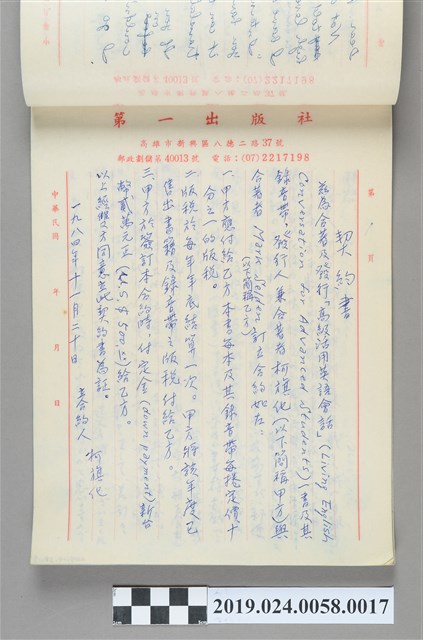 第一出版社
高雄市新興區八德二路37號
郵政劃儲第40013號 電話:(07)2217198
第 頁
契約書
茲為合著及發行「高級活用英語會話」(Living English
Conversation for Advanced Students)(書及其
錄音帶,發行人兼合著者柯旗化(以下簡稱甲方)與
合著者 Mark
(以下簡稱乙方)訂立合約如左:
一、甲方應付給乙方本書每本及其錄音帶每捲定價十
分之一的版稅。
二、版稅於每年年底結算一次。甲方將該年度已
售出書籍及錄音帶之版稅付給乙方。
三、甲方於簽訂本合約時,付定金(down payment)新台
幣貳萬元正(U.S.$500.00)給乙方。
以上經雙方同意立此契約書為証。
一九八四年十一月二十日
立合約人 柯旗化
中華民國 年 月 日
2019.024.0058.0017